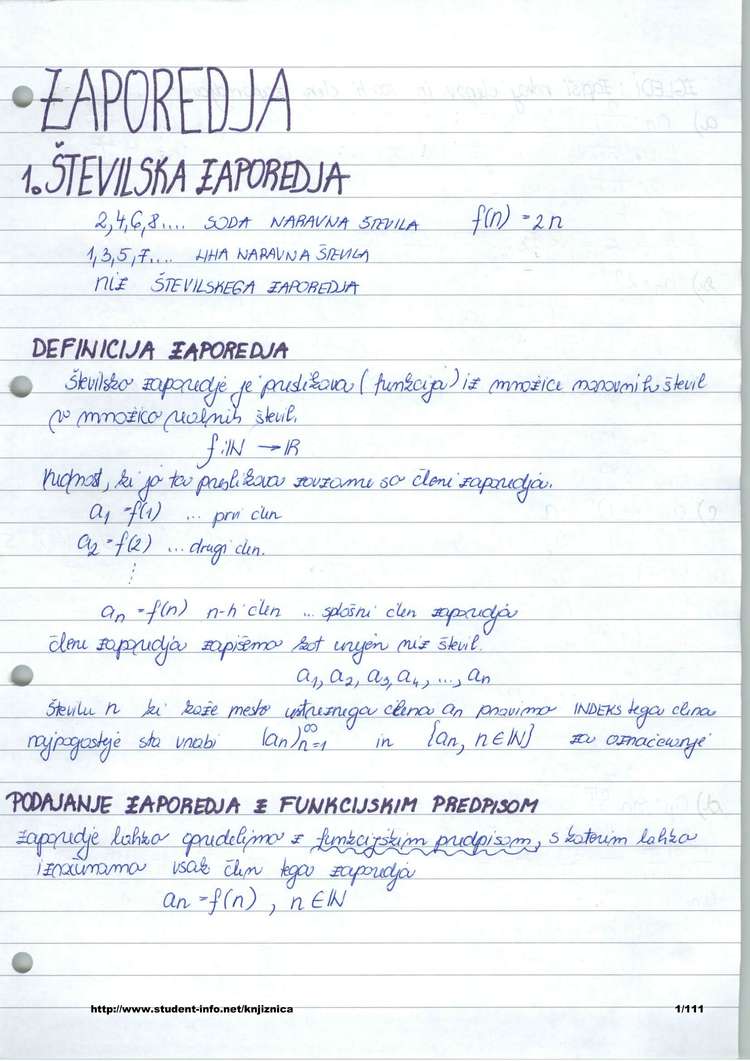 ZAPOREDJA
1. ŠTEVILSKA ZAPOREDJA
2,4,6,8.... SODA NARAVNA ŠTEVILA f(n) = 2n
1,3,5,7.... LIHA NARAVNA ŠTEVILA
NIZ ŠTEVILSKEGA ZAPOREDJA
DEFINICIJA ZAPOREDJA
Številsko zaporedje je preslikava (funkcija) iz množice naravnih števil
v množico realnih števil.
f: ℕ → ℝ
Vrednosti, ki jo ta preslikava zavzame so členi zaporedja.
a₁ = f(1) ... prvi člen
a₂ = f(2) ... drugi člen.
⋮
aₙ = f(n) n-ti člen ... splošni člen zaporedja
člene zaporedja zapišemo kot urejen niz števil.
a₁, a₂, a₃, a₄, ..., aₙ
Številu n ki kaže mesto ustreznega člena aₙ pravimo INDEKS tega člena
najpogosteje sta v rabi (aₙ)ₙ₌₁^∞ in {aₙ, n ∈ ℕ} za označevanje
PODAJANJE ZAPOREDJA Z FUNKCIJSKIM PREDPISOM
zaporedje lahko opredelimo z funkcijskim predpisom, s katerim lahko
izračunamo vsak člen tega zaporedja
aₙ = f(n), n ∈ ℕ
http://www.student-info.net/knjiznica 1/111